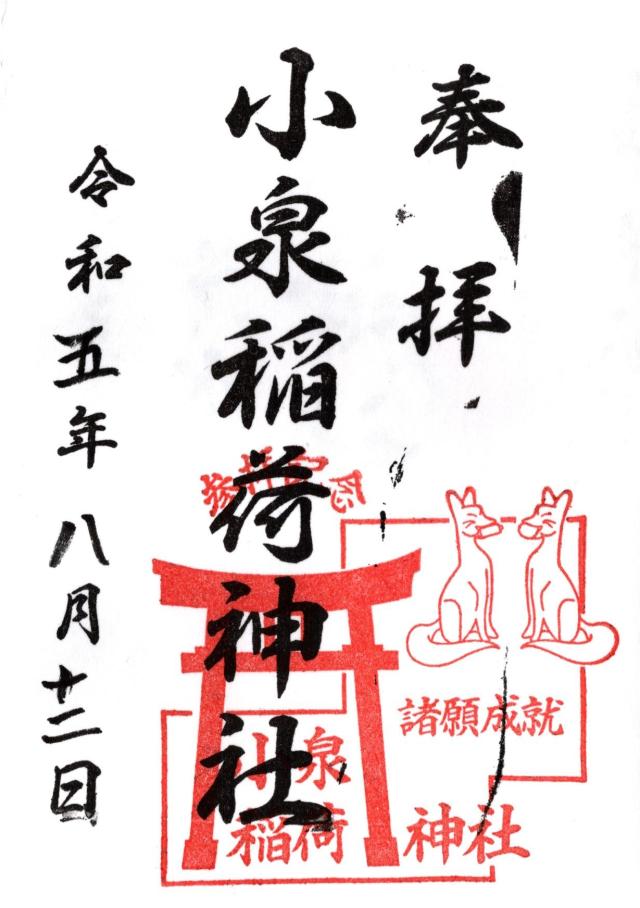 奉拝
小泉稲荷神社
令和五年八月十二日
参拝記念
諸願成就
小泉
稲荷神社